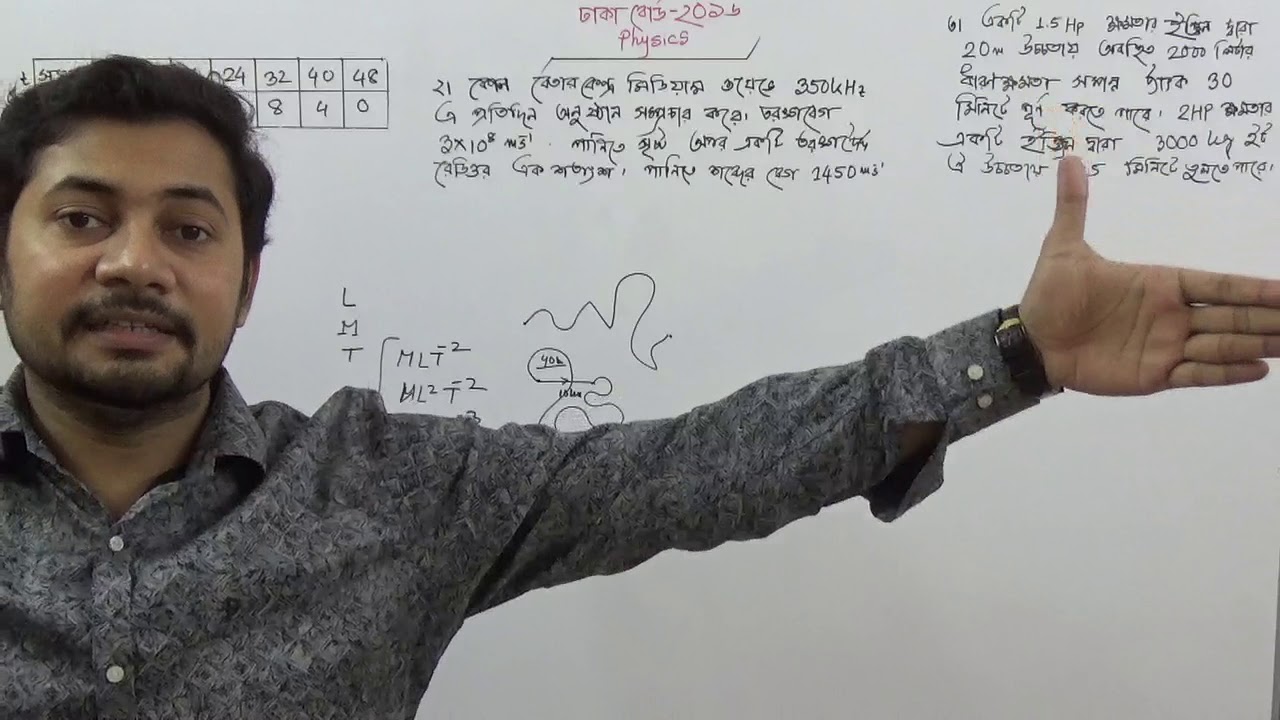 ঢাকা বোর্ড-২০১৬
Physics
24 32 40 48
8 4 0
২। কোন বেতার কেন্দ্র মিডিয়াম ওয়েভে 350kHz
এ প্রতিদিন অনুষ্ঠান সম্প্রচার করে। তরঙ্গবেগ
3×10⁸ ms⁻¹. পানিতে সৃষ্ট অপর একটি তরঙ্গদৈর্ঘ্য
রেডিওর এক শতাংশ। পানিতে শব্দের বেগ 1450ms⁻¹
৩। একটি 1.5 Hp ক্ষমতার ইঞ্জিন দ্বারা
20m উচ্চতায় অবস্থিত 2000 লিটার
ধারণক্ষমতা সম্পন্ন ট্যাংক 30
মিনিটে পূর্ণ করতে পারে। 2HP ক্ষমতার
একটি ইঞ্জিন দ্বারা 3000 kg ইট
ঐ উচ্চতায় 5 মিনিটে তুলতে পারে।
L
M
T
MLT⁻²
ML²T⁻²
40m
10m